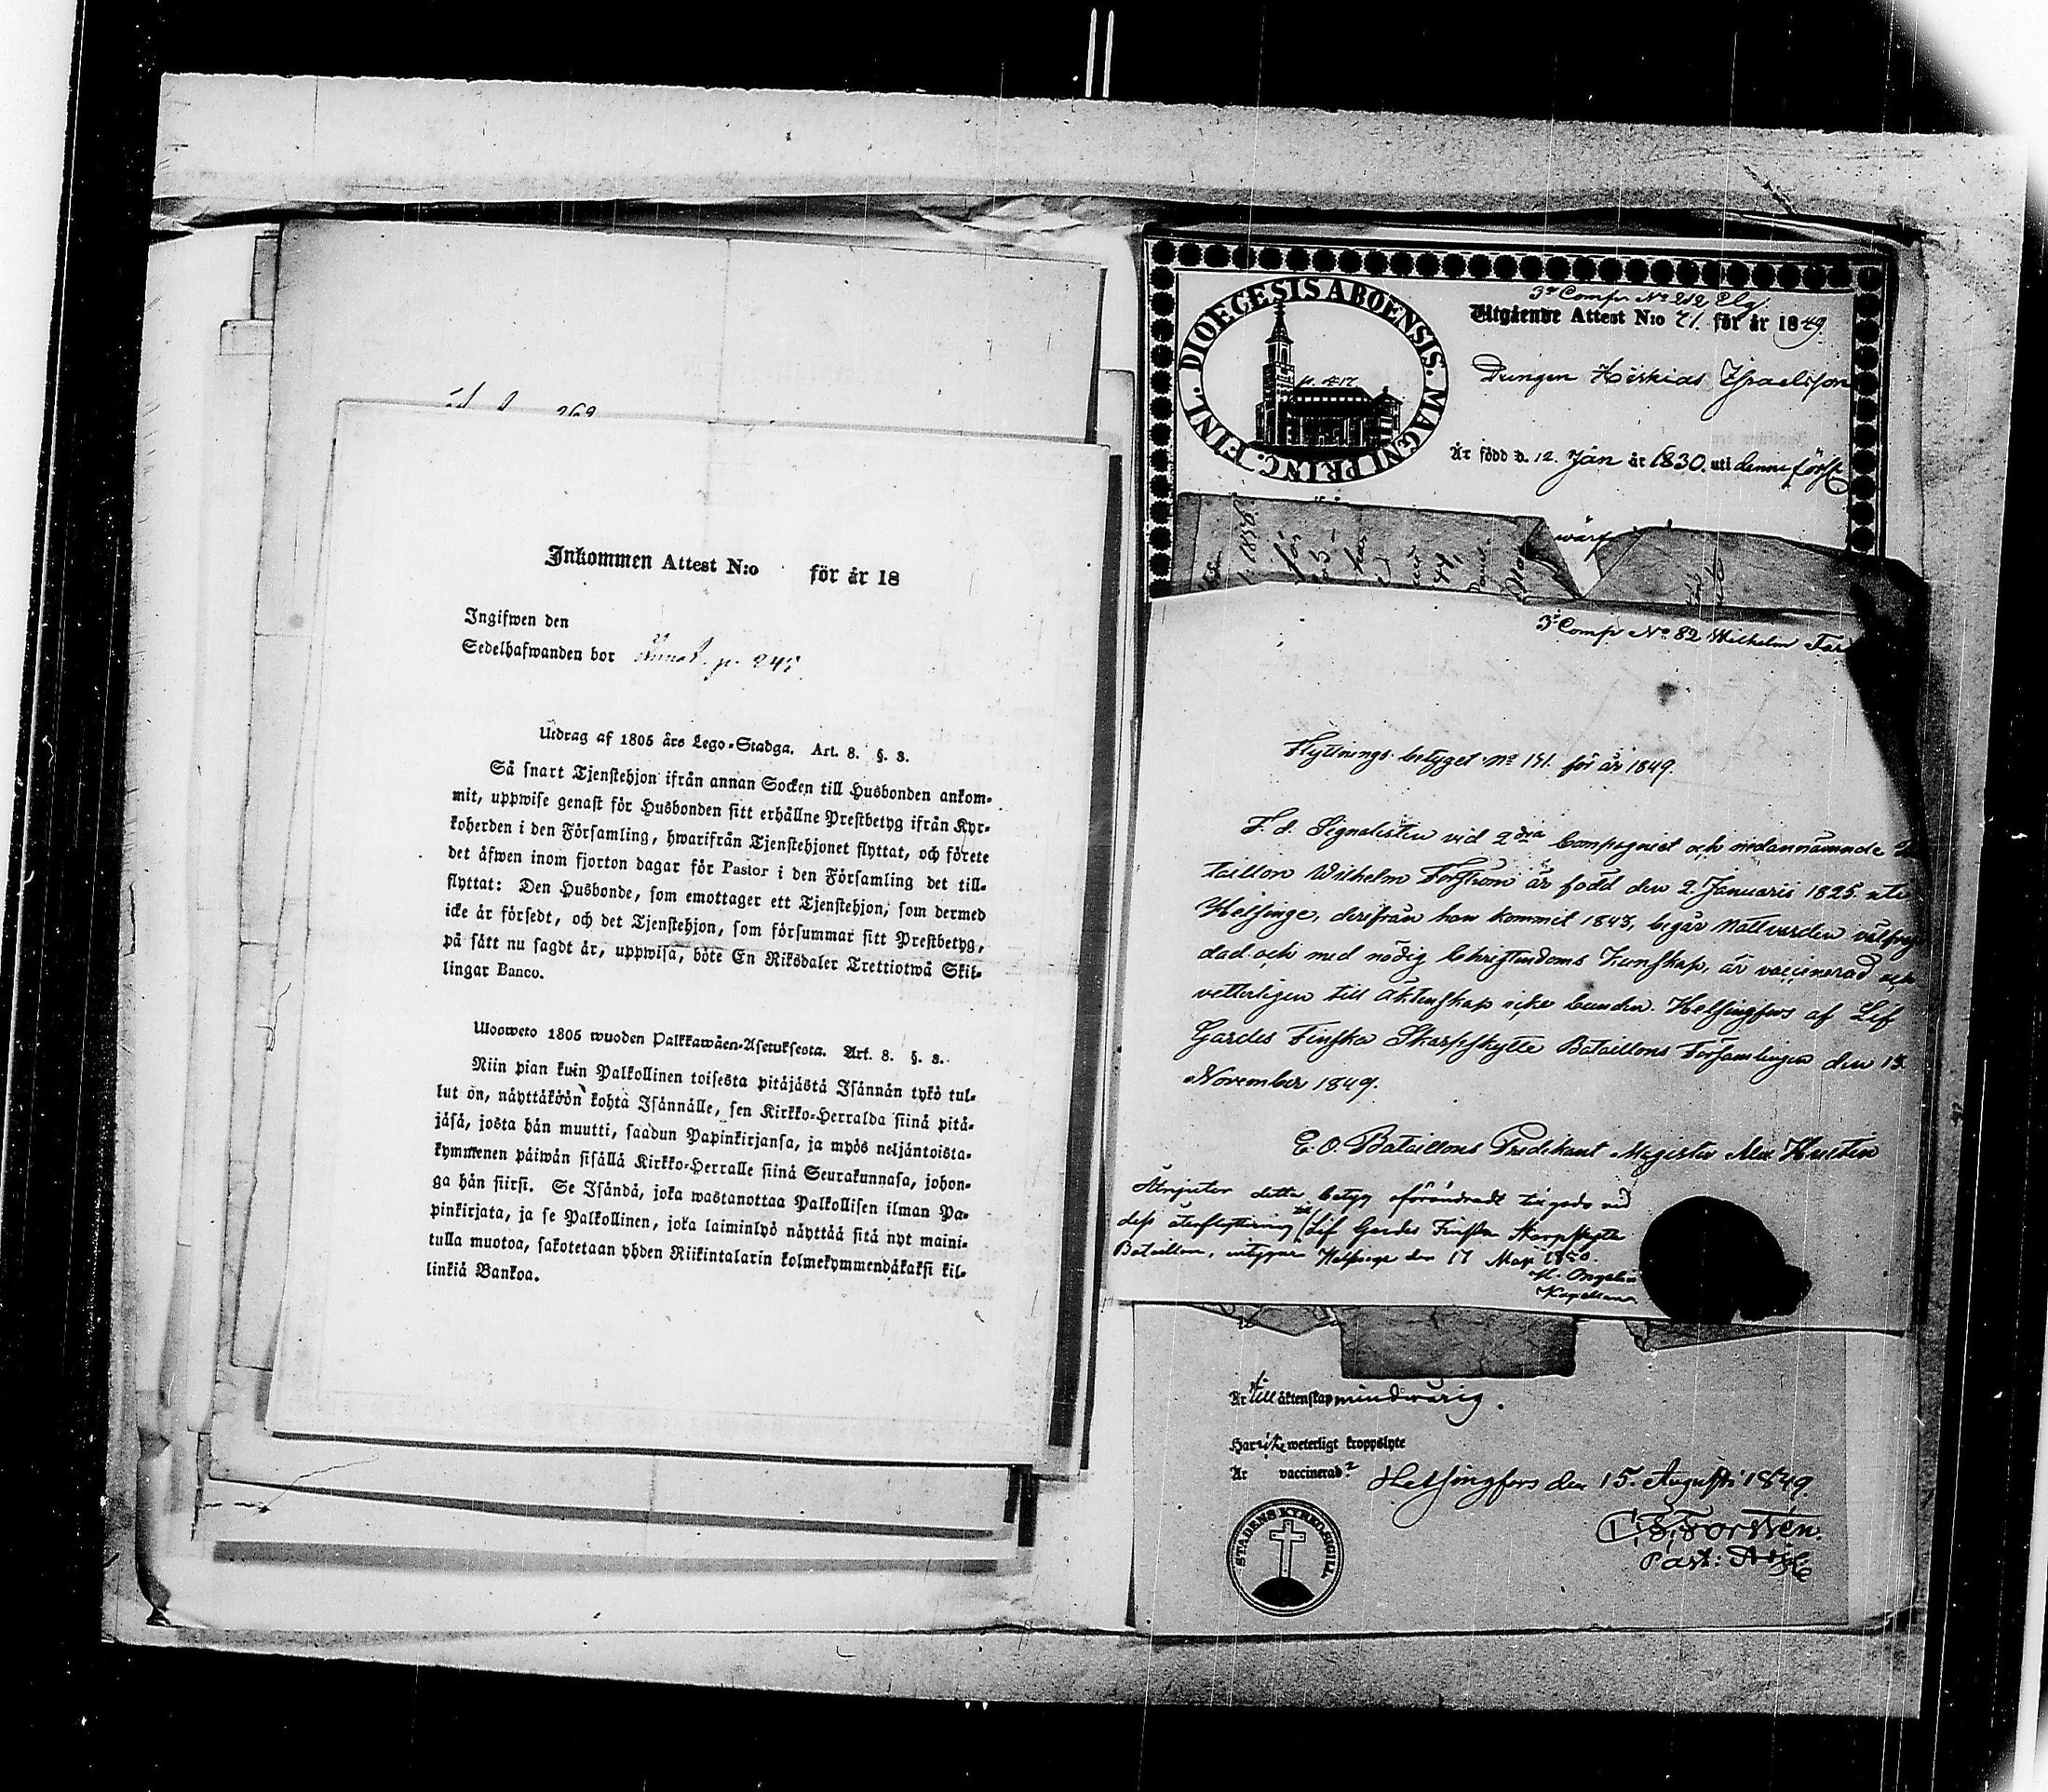 269
Inkommen Attest N:o för år 18
Ingifwen den
Sedelhafwanden bor p. 245.
Utdrag af 1805 års Lego-Stadga. Art. 8. §. 3.
Så snart Tjenstehjon ifrån annan Socken till Husbonden ankom-
mit, uppwise genast för Husbonden sitt erhållne Prestbetyg ifrån Kyr-
koherden i den Församling, hwarifrån Tjenstehjonet flyttat, och förete
det äfwen inom fjorton dagar för Pastor i den Församling det till-
flyttat: Den Husbonde, som emottager ett Tjenstehjon, som dermed
icke är försedt, och det Tjenstehjon, som försummar sitt Prestbetyg,
på sätt nu sagdt är, uppwisa, böte En Riksdaler Trettiotwå Skil-
lingar Banco.
Uloosweto 1805 wuoden Palkkawäen-Asetuksesta. Art. 8. §. 3.
Niin pian kuin Palkollinen toisesta pitäjästä Isännän tykö tul-
lut on, näyttäköön kohta Isännälle, sen Kirkko-Herralda siinä pitä-
jäsä, josta hän muutti, saadun Papinkirjansa, ja myös neljäntoista-
kymmenen päiwän sisällä Kirkko-Herralle siinä Seurakunnasa, johon-
ga hän siirsi. Se Isändä, joka wastanottaa Palkollisen ilman Pa-
pinkirjata, ja se Palkollinen, joka laiminlyö näyttää sitä nyt maini-
tulla muotoa, sakotetaan yhden Riikintalarin kolmekymmendäkaksi kil-
linkiä Bankoa.
FINL. DIOECESIS ABOENSIS. MAGNI PRINC.
3e Comp No 212 Elg.
Utgående Attest N:o 71. för år 1849.
Drengen Heskias Israelsson
Är född d. 12. Jan år 1830. uti denne förs.
3e Comp No 82 Wilhelm For
Flyttnings betyget No 151. för år 1849.
F. d. Signalisten vid 2dra Compagniet och nedannämnde
taillon Wilhelm Forström är född den 2 Januarii 1825 uti
Helsinge, derifrån han kommit 1843, begår Nattvarden välfrej
dad och med nödig Christendoms Kunskap, är vaccinerad och
vetterligen till Äktenskap icke bunden. Helsingfors af Lif
Gardes Finska Skarpskytte Bataillons Församlingen den 13
November 1849.
E. O. Bataillons Predikant Magister Alex Hultin
Atnjuter detta betyg oförändradt till godo vid
dess återflyttning till Lif Gardes Finska Skarpskytte
Bataillon, intygar Helsinge den 17 Maj 1850.
Kapellan
Är till äktenskap mindrårig.
Har icke weterligt kroppslyte
Är vaccinerad
Helsingfors den 15. Augusti 1849
C. F. Forstén.
Past:
STADENS KYRKOSIGILL